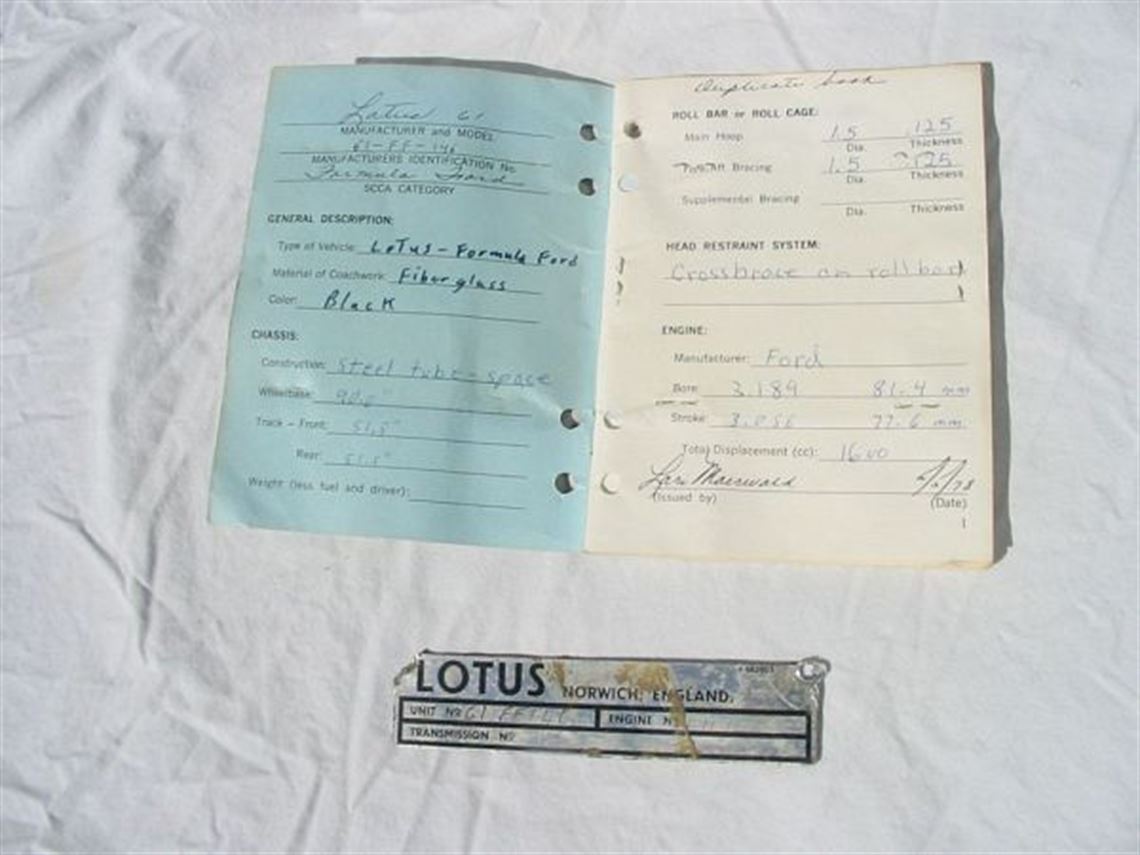 Lotus 61
MANUFACTURER and MODEL
61-FF-146
MANUFACTURERS IDENTIFICATION No
Formula Ford
SCCA CATEGORY
GENERAL DESCRIPTION:
Type of Vehicle: LoTus - Formula Ford
Material of Coachwork: Fiberglass
Color: Black
CHASSIS:
Construction: Steel tube - space
Wheelbase: 90.0"
Track - Front: 51.5"
Rear: 51.5"
Weight (less fuel and driver):
Duplicate book
ROLL BAR or ROLL CAGE:
Main Hoop 1.5 .125
Dia. Thickness
Bracing 1.5 .125
Dia. Thickness
Supplemental Bracing
Dia. Thickness
HEAD RESTRAINT SYSTEM:
Crossbrace on roll bar
ENGINE:
Manufacturer: Ford
Bore: 3.189 81.4 mm
Stroke: 3.056 77.6 mm
Total Displacement (cc): 1600
(Issued by) (Date)
1
LOTUS NORWICH, ENGLAND.
UNIT No 61 FF ENGINE No
TRANSMISSION No